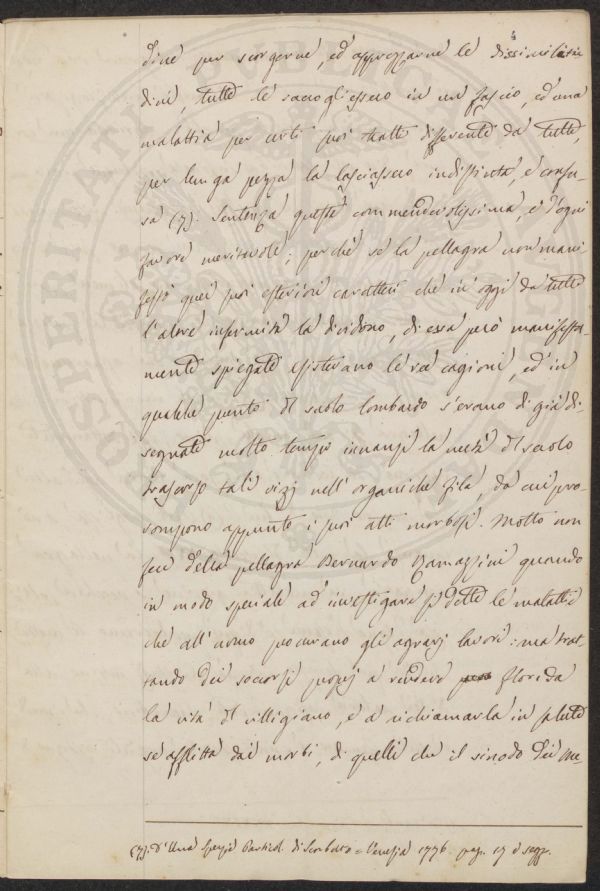 4
dine per scorgerne, ed apprezzarne le dissimilitu-
dini, tutte le raccogliessero in un fascio, ed una
malattia per certi suoi tratti differente da tutte,
per lunga pezza la lasciassero indistinta, e confu-
sa (7). Sentenza questa commendevolissima, e d'ogni
favore meritevole; perchè se la pellagra non mani-
festò quei suoi esteriori caratteri che in oggi da tutte
l'altre infermità la dividono, di essa però manifesta-
mente spiegate esistevano le ree cagioni, ed in
qualche punto del suolo lombardo s'erano di già di-
segnate molto tempo innanzi la metà del secolo
trascorso tali vizj nell'organiche fila, da cui pro-
rompono appunto i suoi atti morbosi. Motto non
fece della pellagra Bernardo Ramazzini quando
in modo speciale ad investigare si dette le malattie
che all'uomo procurano gli agrarj lavori: ma trat-
tando dei soccorsi proprj a rendere florida
la vita del villigiano, e a richiamarla in salute
se afflitta dai morbi, di quelli che il sinodo dei me-
(7). D'Una Spezie Particol. di Scorbuto = Venezia 1776. pag. 17 e segg.